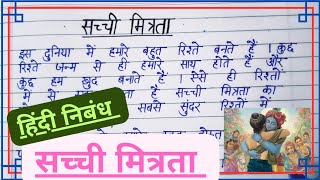 सच्ची मित्रता
इस दुनिया में हमारे बहुत रिश्ते बनते हैं । कुछ
रिश्ते जन्म से ही हमारे साथ होते हैं और
कुछ हम खुद बनाते हैं । ऐसे ही रिश्तों
में से है सच्ची मित्रता का
सबसे सुंदर रिश्तों में
हिंदी निबंध
सच्ची मित्रता